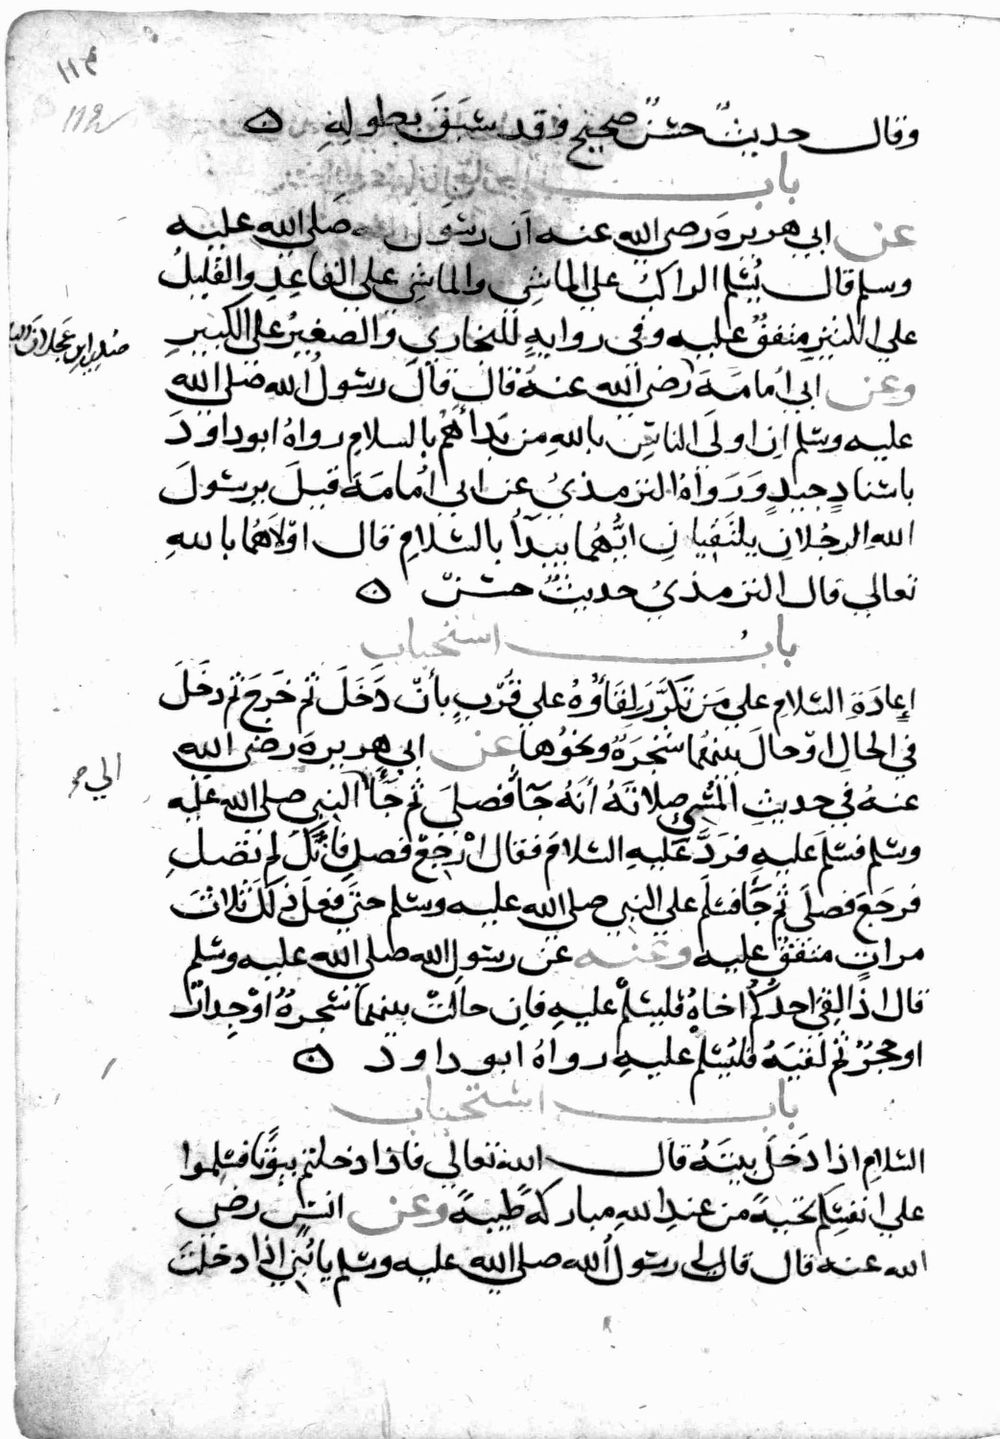 وقال حديثٌ حسَنٌ صحيح وقد سَبَقَ بطولِهِ ه
باب
عن ابي هريرة رضي الله عنه أن رسول الله صلى الله عليه
وسلم قال يُسَلم الراكبُ على الماشِي والماشِي على القاعِدِ والقليلُ
على الكثيرِ متفقٌ عليه وفي روايةٍ للبخاري والصغيرُ على الكبيرِ
وعن ابي اُمامَة رضي الله عنهُ قال قال رسُولُ الله صلى الله
عليه وسلم ان اولَى الناسِ باللهِ من بَدأهُمْ بالسلامِ رواهُ ابو داودَ
باسنادٍ جيدٍ وَرَوَاهُ الترمذيُ عن ابي اُمامَة قيلَ يرسُولَ
اللهِ الرجُلانِ يلتَقيانِ ايُّهُما يبدَأُ بالسَّلامِ قال اوْلاهُما باللهِ
تعالي قال الترمذيُ حديثٌ حسَنٌ ه
بابُ استحباب
إعادَةِ السَّلامِ علي مَن تَكرَّرَ لِقَاؤُهُ علي قُرْبٍ بأنْ دَخَلَ ثم خَرَجَ ثم دخَلَ
في الحالِ اوْ حالَ بينهُما شجَرَةٌ ونحوُها عن ابي هريرة رضي الله
عنهُ في حديثِ المُسِيءِ صلاتَهُ أنهُ جَآ فصلَّى ثم جَآ الي النبي صلى الله عليه
وسلم فسَلم عليهِ فرَدَّ عَليهِ السَّلامَ فقال ارْجِعْ فصلِ فإنَّكَ لم تصلِ
فرجَعَ فصلَّى ثم جَآ فسَلَّم علي النبي صلى الله عليه وسلم حتى فعلَ ذلكَ ثلاثَ
مراتٍ متفقٌ عليه وعنه عن رسولِ الله صلى الله عليه وسلم
قال اذا لقِيَ احدُكُم اخاهُ فليُسَلِّمْ عليهِ فإن حالَتْ بينهما شجرَةٌ اوْ جِدارٌ
او حجرٌ ثم لقيَهُ فليُسَلِّمْ عليهِ رواهُ ابو داود ه
باب استحباب
السَّلامِ اذا دَخَلَ بيتَهُ قال الله تعالى فاذا دخلتم بيوتًا فسَلموا
علي انفسِكم تحيةً من عندِ اللهِ مباركةً طيبةً وعن انسٍ رضي
الله عنه قال قال لي رسُولُ الله صلى الله عليه وسلم يا بُنيّ اذا دخلتَ
الي صح